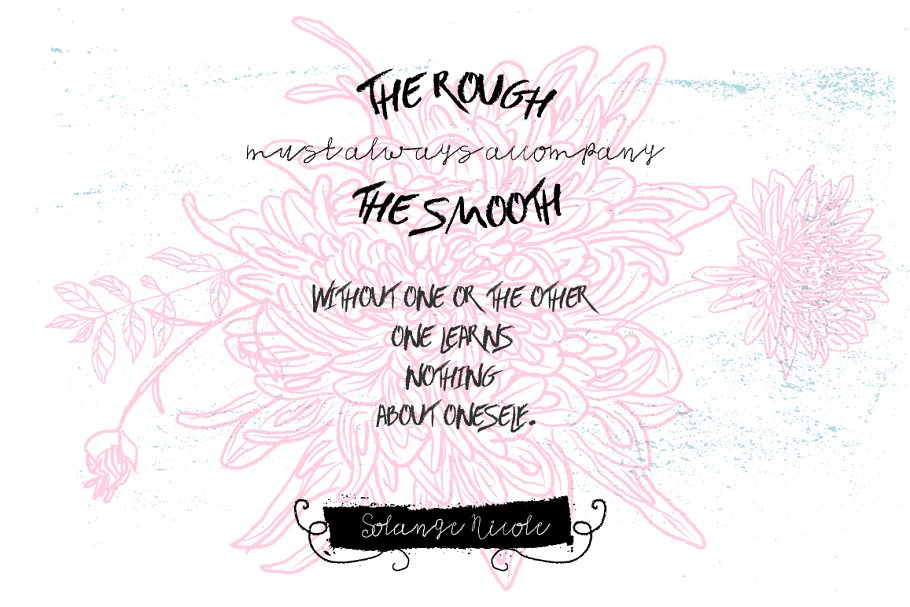 THE ROUGH
must always accompany
THE SMOOTH
WITHOUT ONE OR THE OTHER
ONE LEARNS
NOTHING
ABOUT ONESELF.
Solange Nicole